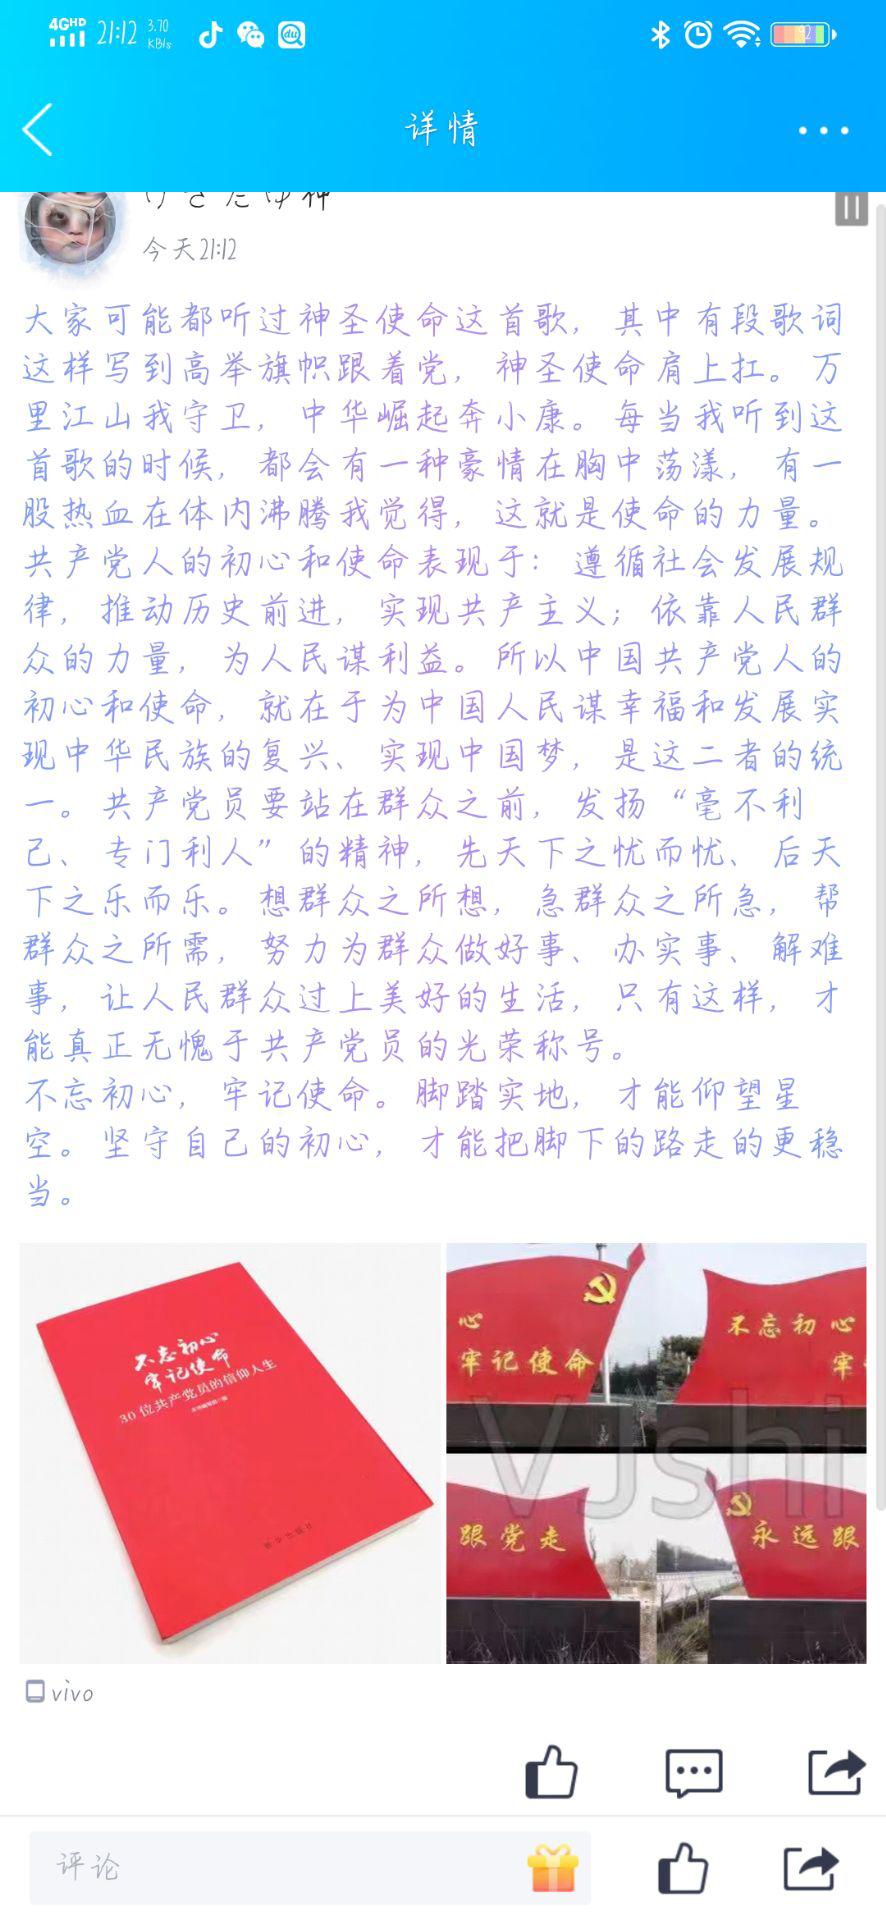 4GHD 21:12 3.70 KB/s 92
详情
今天21:12
大家可能都听过神圣使命这首歌，其中有段歌词
这样写到高举旗帜跟着党，神圣使命肩上扛。万
里江山我守卫，中华崛起奔小康。每当我听到这
首歌的时候，都会有一种豪情在胸中荡漾，有一
股热血在体内沸腾我觉得，这就是使命的力量。
共产党人的初心和使命表现于：遵循社会发展规
律，推动历史前进，实现共产主义；依靠人民群
众的力量，为人民谋利益。所以中国共产党人的
初心和使命，就在于为中国人民谋幸福和发展实
现中华民族的复兴、实现中国梦，是这二者的统
一。共产党员要站在群众之前，发扬“毫不利
己、专门利人”的精神，先天下之忧而忧、后天
下之乐而乐。想群众之所想，急群众之所急，帮
群众之所需，努力为群众做好事、办实事、解难
事，让人民群众过上美好的生活，只有这样，才
能真正无愧于共产党员的光荣称号。
不忘初心，牢记使命。脚踏实地，才能仰望星
空。坚守自己的初心，才能把脚下的路走的更稳
当。
不忘初心
牢记使命
30位共产党员的信仰人生
新华出版社
心
牢记使命
不忘初心
牢
VJshi
跟党走
永远跟
vivo
评论